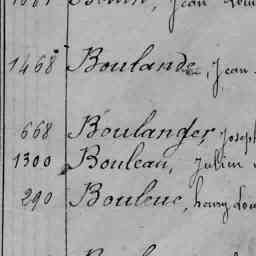 1468 Boulande, Jean
668 Boulanger, Joseph
1300 Bouleau, Julien
290 Bouleuc, henry Lou